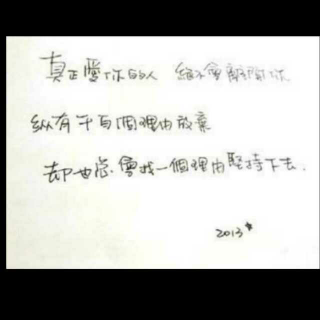 真正愛你的人 絕不會離開你
縱有千百個理由放棄
却也總會找一個理由堅持下去.
2013*